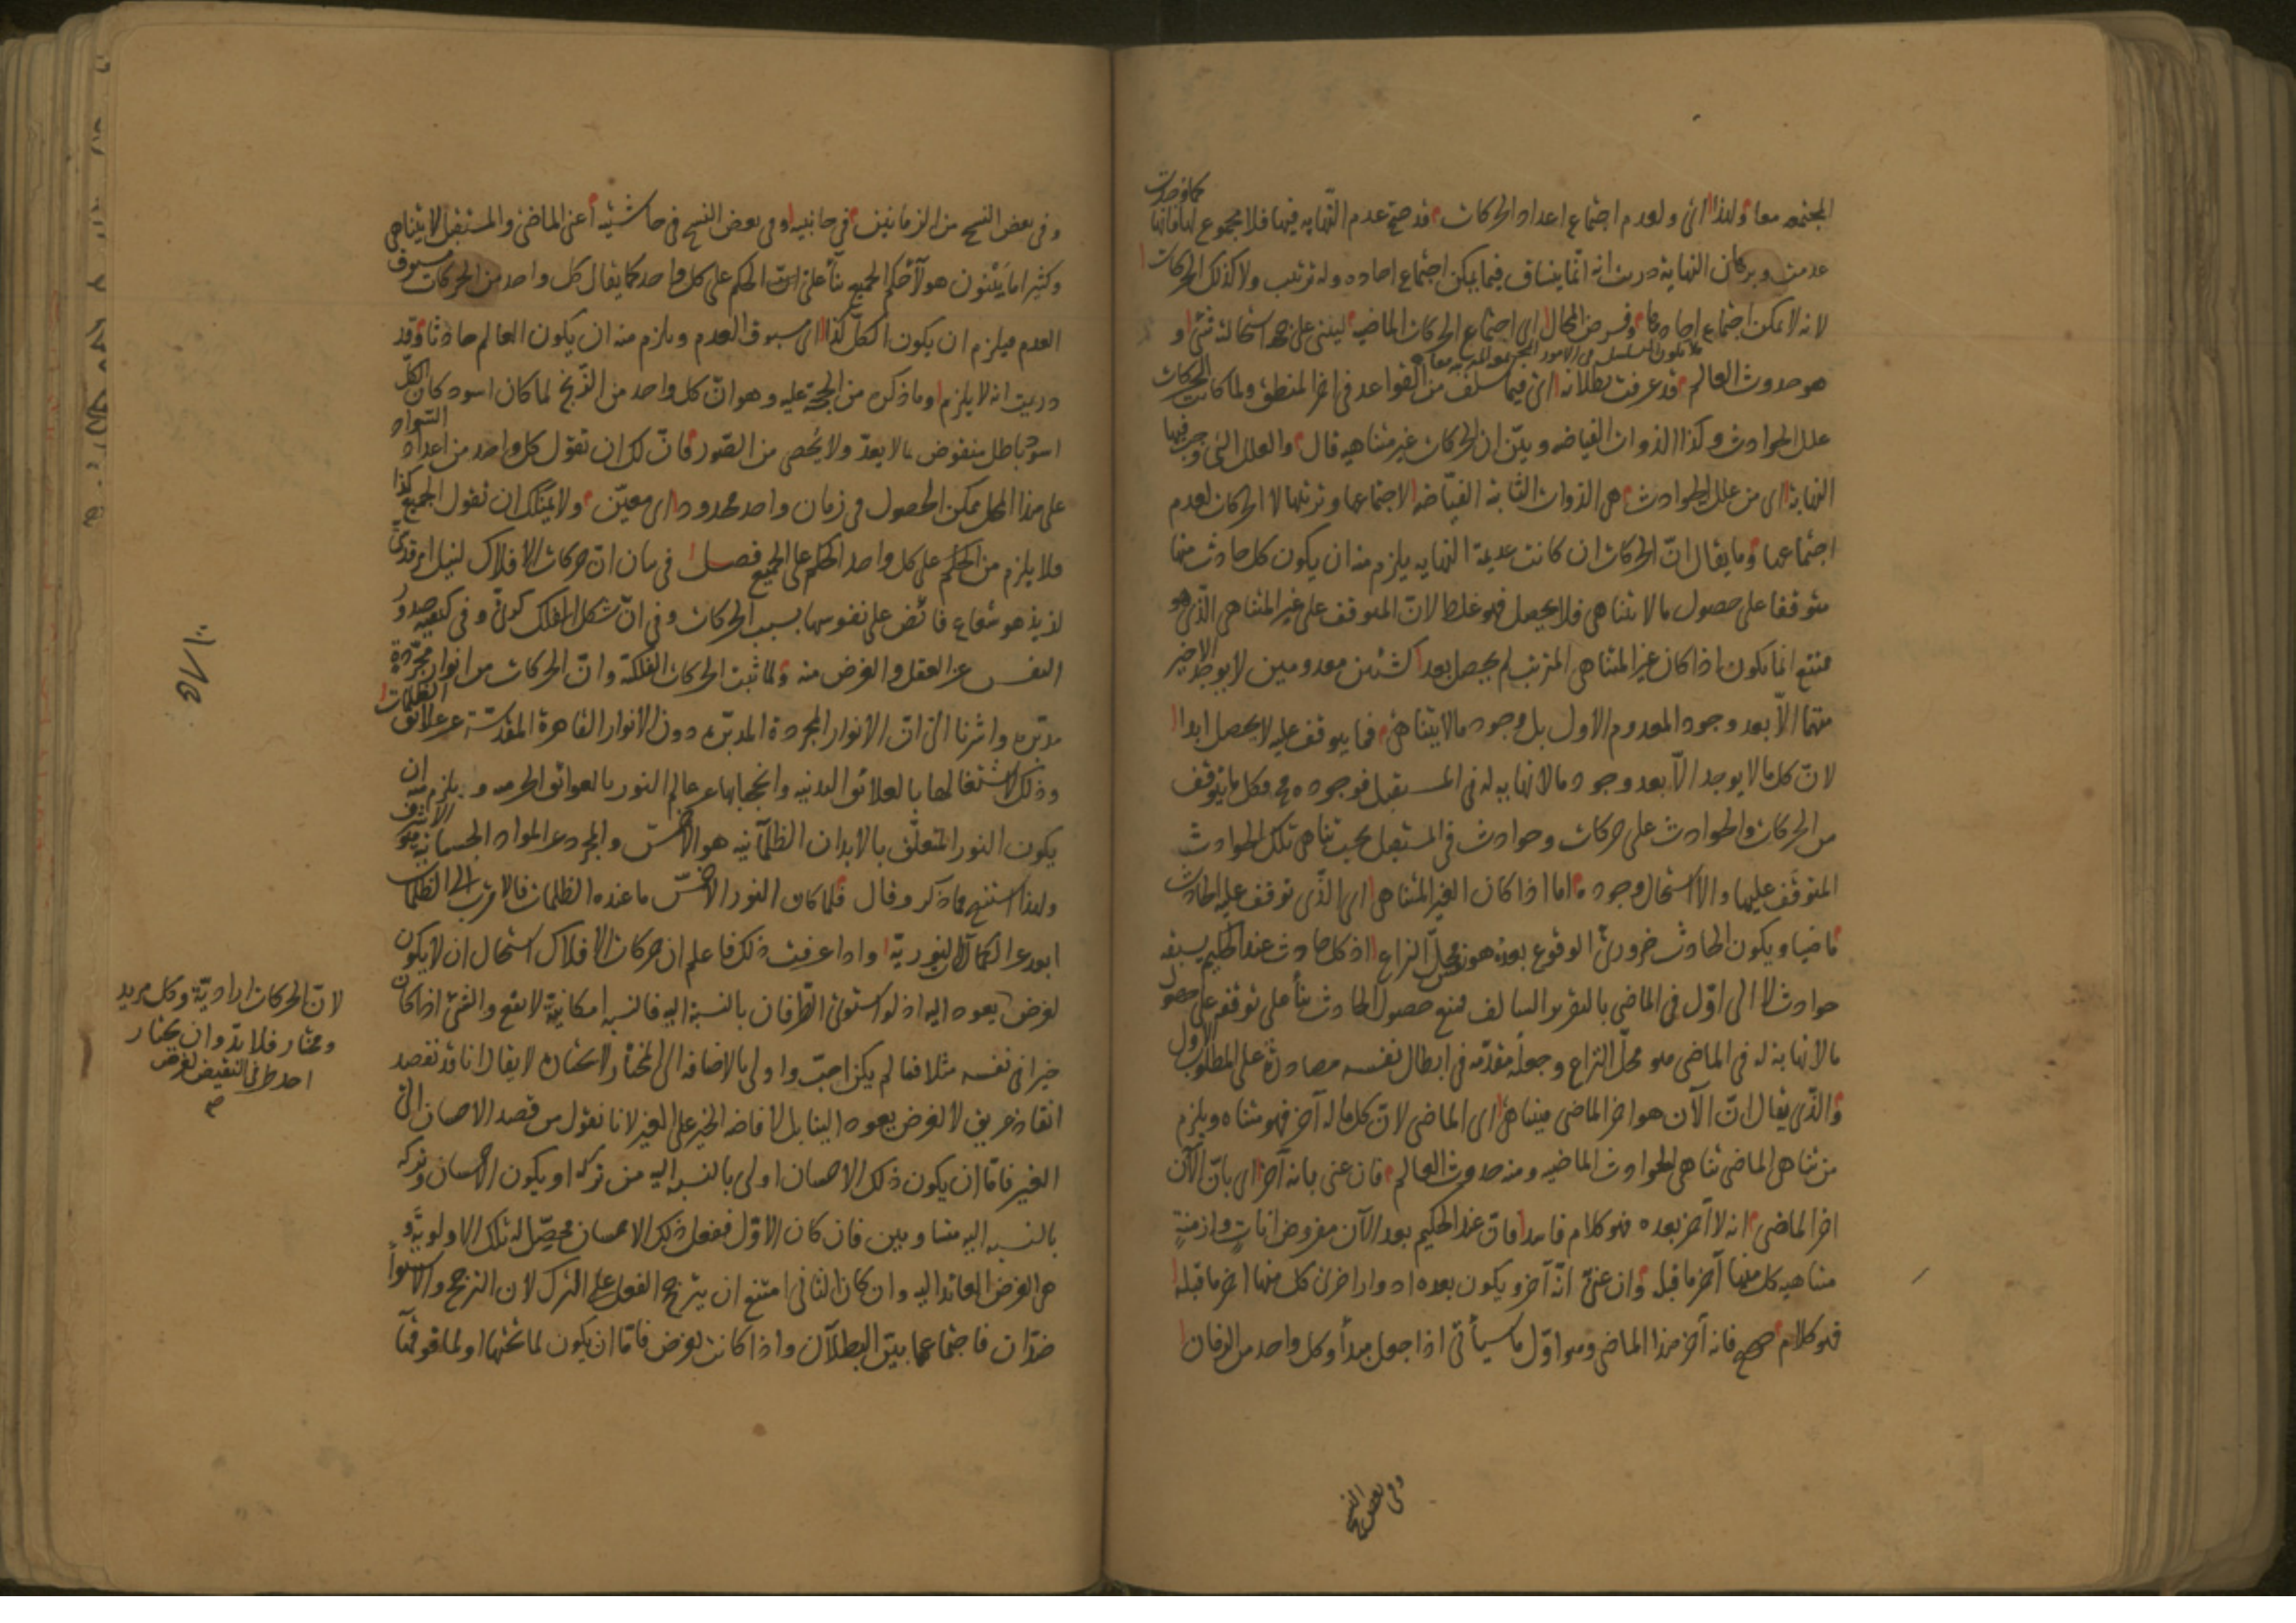 المجتمعه معا ولهذا اى ولعدم اجتماع اعداد الحركات قد صح عدم النهايه فيها فلا مجموع لها فانها كما وجدت
عدمت وبرهان النهاية دريت انه انما ينساق فيما يمكن اجتماع احاده وله ترتيب ولا كذلك الحركات
لانه لا يمكن اجتماع احادها وفرض المحال اى اجتماع الحركات الماضيه ليبنى على جهة استحالة شئ او
هو حدوث العالم قد عرفت بطلانه اى فيما سلف من القواعد فى اخر المنطق ولما كانت الحركات
علل الحوادث وكذا الذوات الفياضه وبين ان الحركات غير متناهيه قال والعلل التى وجب فيها
النهاية اى من علل الحوادث هى الذوات الثابتة الفياضه لاجتماعها وترتبها لا الحركات لعدم
اجتماعها وما يقال ان الحركات ان كانت عديمة النهايه يلزم منه ان يكون كل حادث منها
متوقفا على حصول ما لا يتناهى فلا يحصل فهو غلط لان المتوقف على غير المتناهى الذى هو
ممتنع انما يكون اذا كان غير المتناهى المترتب لم يحصل بعد كشيئين معدومين لا يوجد الاخير
منهما الا بعد وجود المعدوم الاول بل وجود ما لا يتناهى فما يتوقف عليه لا يحصل ابدا
لان كل ما لا يوجد الا بعد وجود ما لا نهاية له فى المستقبل فوجوده مح وكل ما يتوقف
من الحركات والحوادث على حركات وحوادث فى المستقبل يجب تناهى تلك الحوادث
المتوقف عليها والا استحال وجوده اما اذا كان الغير المتناهى اى الذى توقف عليه الحادث
ماضيا ويكون الحادث ضرورى الوقوع بعده هو نفس محل النزاع اذ كل حادث عند الحكيم يسبقه
حوادث لا الى اول فى الماضى بالتقرير السالف فمنع حصول الحادث بنأ على توقفه على حصول
ما لا نهاية له فى الماضى هو محل النزاع وجعله مقدمه فى ابطال نفسه مصادرة على المطلوب الاول
والذى يقال ان الآن هو اخر الماضى فيتناهى اى الماضى لان كل ما له آخر فهو متناه ويلزم
من تناهى الماضى تناهى الحوادث الماضيه ومنه حدوث العالم فان عنى بانه آخر اى بان الآن
اخر الماضى انه لا آخر بعده فهو كلام فاسد فان عند الحكيم بعد الآن مفروض انات وازمنة
متناهيه كل منها آخر ما قبله وان عنى انه آخر ويكون بعده ادوار اخرى كل منها اخر ما قبله
فهو كلام صحيح فانه آخر هذا الماضى وهو اول ما سيأتى اذا جعل مبدأ وكل واحد من الزمان
وفى بعض النسخ
وفى بعض النسخ من الزمانين فى جانبيه وفى بعض النسخ فى حاشيتيه اعنى الماضى والمستقبل لا يتناهى
وكثيرا ما يبنون هولآ حكم الجميع بنآ على الحكم على كل واحد كما يقال كل واحد من الحركات مسبوق
العدم فيلزم ان يكون الكل كذا اى مسبوق العدم ويلزم منه ان يكون العالم حادثا وقد
دريت انه لا يلزم وما ذكره من الحجة عليه وهو ان كل واحد من الزنج لما كان اسود كان الكل
اسود باطل منقوض بما لا يعد ولا يحصى من الصور فان لك ان تقول كل واحد من اعداد السواد
على هذا المحل ممكن الحصول فى زمان واحد محدود اى معين ولا يمكنك ان تقول الجميع كذا
فلا يلزم من الحكم على كل واحد الحكم على الجميع فصل فى بيان ان حركات الافلاك لنيل امر قدسى
لذيذ هو شعاع فائض على نفوسها بسبب الحركات وفى ان شكل الفلك كرى وفى كيفيه صدور
النفس عن العقل والغرض منه ولما ثبت الحركات الفلكية وان الحركات من انوار مجردة
مدبره واشرنا الى ان الانوار المجردة المدبره دون الانوار القاهرة المقدسة عن علائق الظلمات
وذلك لاشتغالها بالعلائق البدنيه وانحجابها عن عالم النور بالعوائق الجرميه ويلزم منه ان
يكون النور المتعلق بالابدان الظلمآنيه هو الاخس والمجرد عن المواد الجسمانيه هو الاشرف
ولهذا استنتج مما ذكر وقال فلما كان النور الاخس ما عنده الظلمات فالاقرب الى الظلمات
ابعد عن الكمالات النوريه واذا عرفت ذلك فاعلم ان حركات الافلاك استحال ان لا يكون
لغرض يعود اليه اذ لو استوى الطرفان بالنسبة اليه فالنسبه امكانية لا تقع والشئ اذا كان
خيرا فى نفسه مثلا فما لم يكن احب واولى بالاضافه الى المختار لا يختاره لا يقال انا قد نقصد
انقاذ غريق لا لغرض يعود الينا بل لافاضه الخير على الغير لانا نقول من قصد الاحسان الى
الغير فاما ان يكون ذلك الاحسان اولى بالنسبه اليه من تركه او يكون الاحسان وتركه
بالنسبه اليه متساويين فان كان الاول ففعل ذلك الاحسان محصل له تلك الاولويه و
هى الغرض العائد اليه وان كان الثانى امتنع ان يترجح الفعل على الترك لان الترجح والاستوأ
ضدان فاجتماعهما بين البطلان واذا كانت لغرض فاما ان يكون لما تحتها او لما فوقها
لان الحركات ارادية وكل مريد
ومختار فلا بد وان يختار
احد طرفى النقيض لغرض